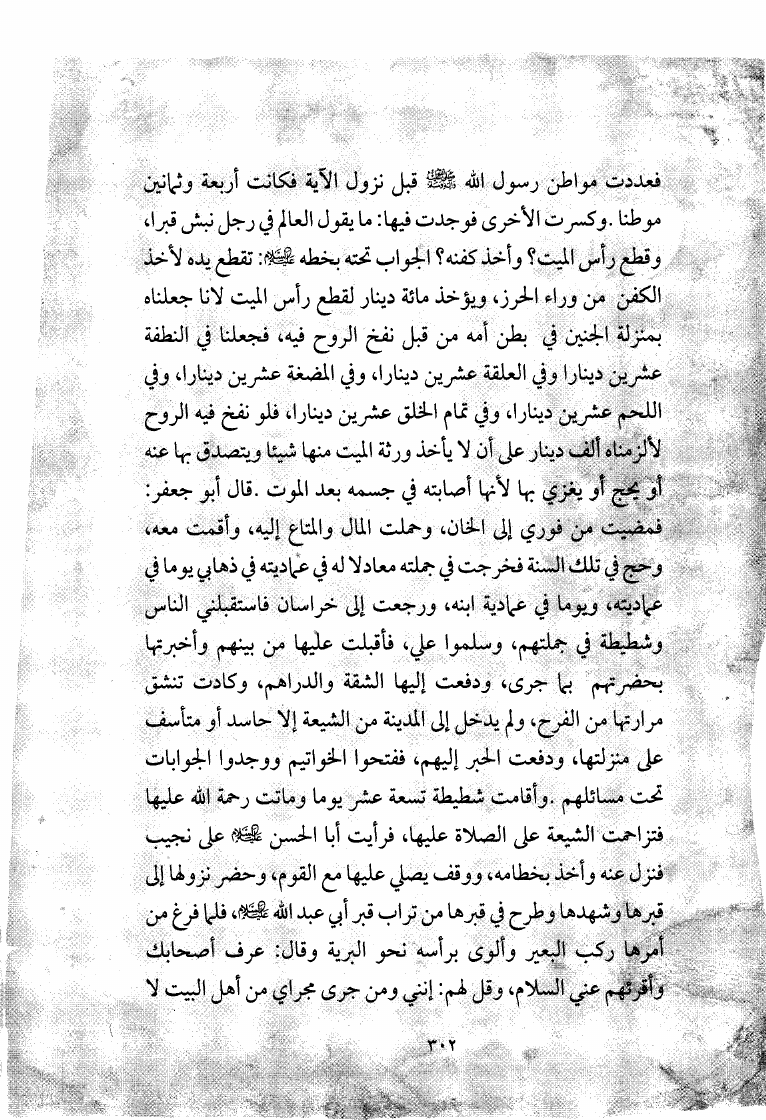 فعددت مواطن رسول الله ﷺ قبل نزول الآية فكانت أربعة وثمانين
موطنا .وكسرت الأخرى فوجدت فيها: ما يقول العالم في رجل نبش قبرا،
وقطع رأس الميت؟ وأخذ كفنه؟ الجواب تحته بخطه عليه السلام: تقطع يده لأخذ
الكفن من وراء الحرز، ويؤخذ مائة دينار لقطع رأس الميت لانا جعلناه
بمنزلة الجنين في بطن أمه من قبل نفخ الروح فيه، فجعلنا في النطفة
عشرين دينارا وفي العلقة عشرين دينارا، وفي المضغة عشرين دينارا، وفي
اللحم عشرين دينارا، وفي تمام الخلق عشرين دينارا، فلو نفخ فيه الروح
لألزمناه ألف دينار على أن لا يأخذ ورثة الميت منها شيئا ويتصدق بها عنه
أو يحج أو يغزي بها لأنها أصابته في جسمه بعد الموت .قال أبو جعفر:
فمضيت من فوري إلى الخان، وحملت المال والمتاع إليه، وأقمت معه،
وحج في تلك السنة فخرجت في جملته معادلا له في عماديته في ذهابي يوما في
عماديته، ويوما في عمادية ابنه، ورجعت إلى خراسان فاستقبلني الناس
وشطيطة في جملتهم، وسلموا علي، فأقبلت عليها من بينهم وأخبرتها
بحضرتهم بما جرى، ودفعت إليها الشقة والدراهم، وكادت تنشق
مرارتها من الفرح، ولم يدخل إلى المدينة من الشيعة إلا حاسد أو متأسف
على منزلتها، ودفعت الخبر إليهم، ففتحوا الخواتيم ووجدوا الجوابات
تحت مسائلهم .وأقامت شطيطة تسعة عشر يوما وماتت رحمة الله عليها
فتزاحمت الشيعة على الصلاة عليها، فرأيت أبا الحسن عليه السلام على نجيب
فنزل عنه وأخذ بخطامه، ووقف يصلي عليها مع القوم، وحضر نزولها إلى
قبرها وشهدها وطرح في قبرها من تراب قبر أبي عبد الله عليه السلام، فلما فرغ من
أمرها ركب البعير وألوى برأسه نحو البرية وقال: عرف أصحابك
وأقرئهم عني السلام، وقل لهم: إنني ومن جرى مجراي من أهل البيت لا
٣٠٢